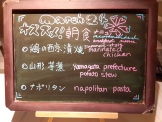 march 24
オススメ!朝食
鶏の西京漬焼 marinated
chicken
山形芋煮 Yamagata prefecture
potato stew
ナポリタン napolitan pasta